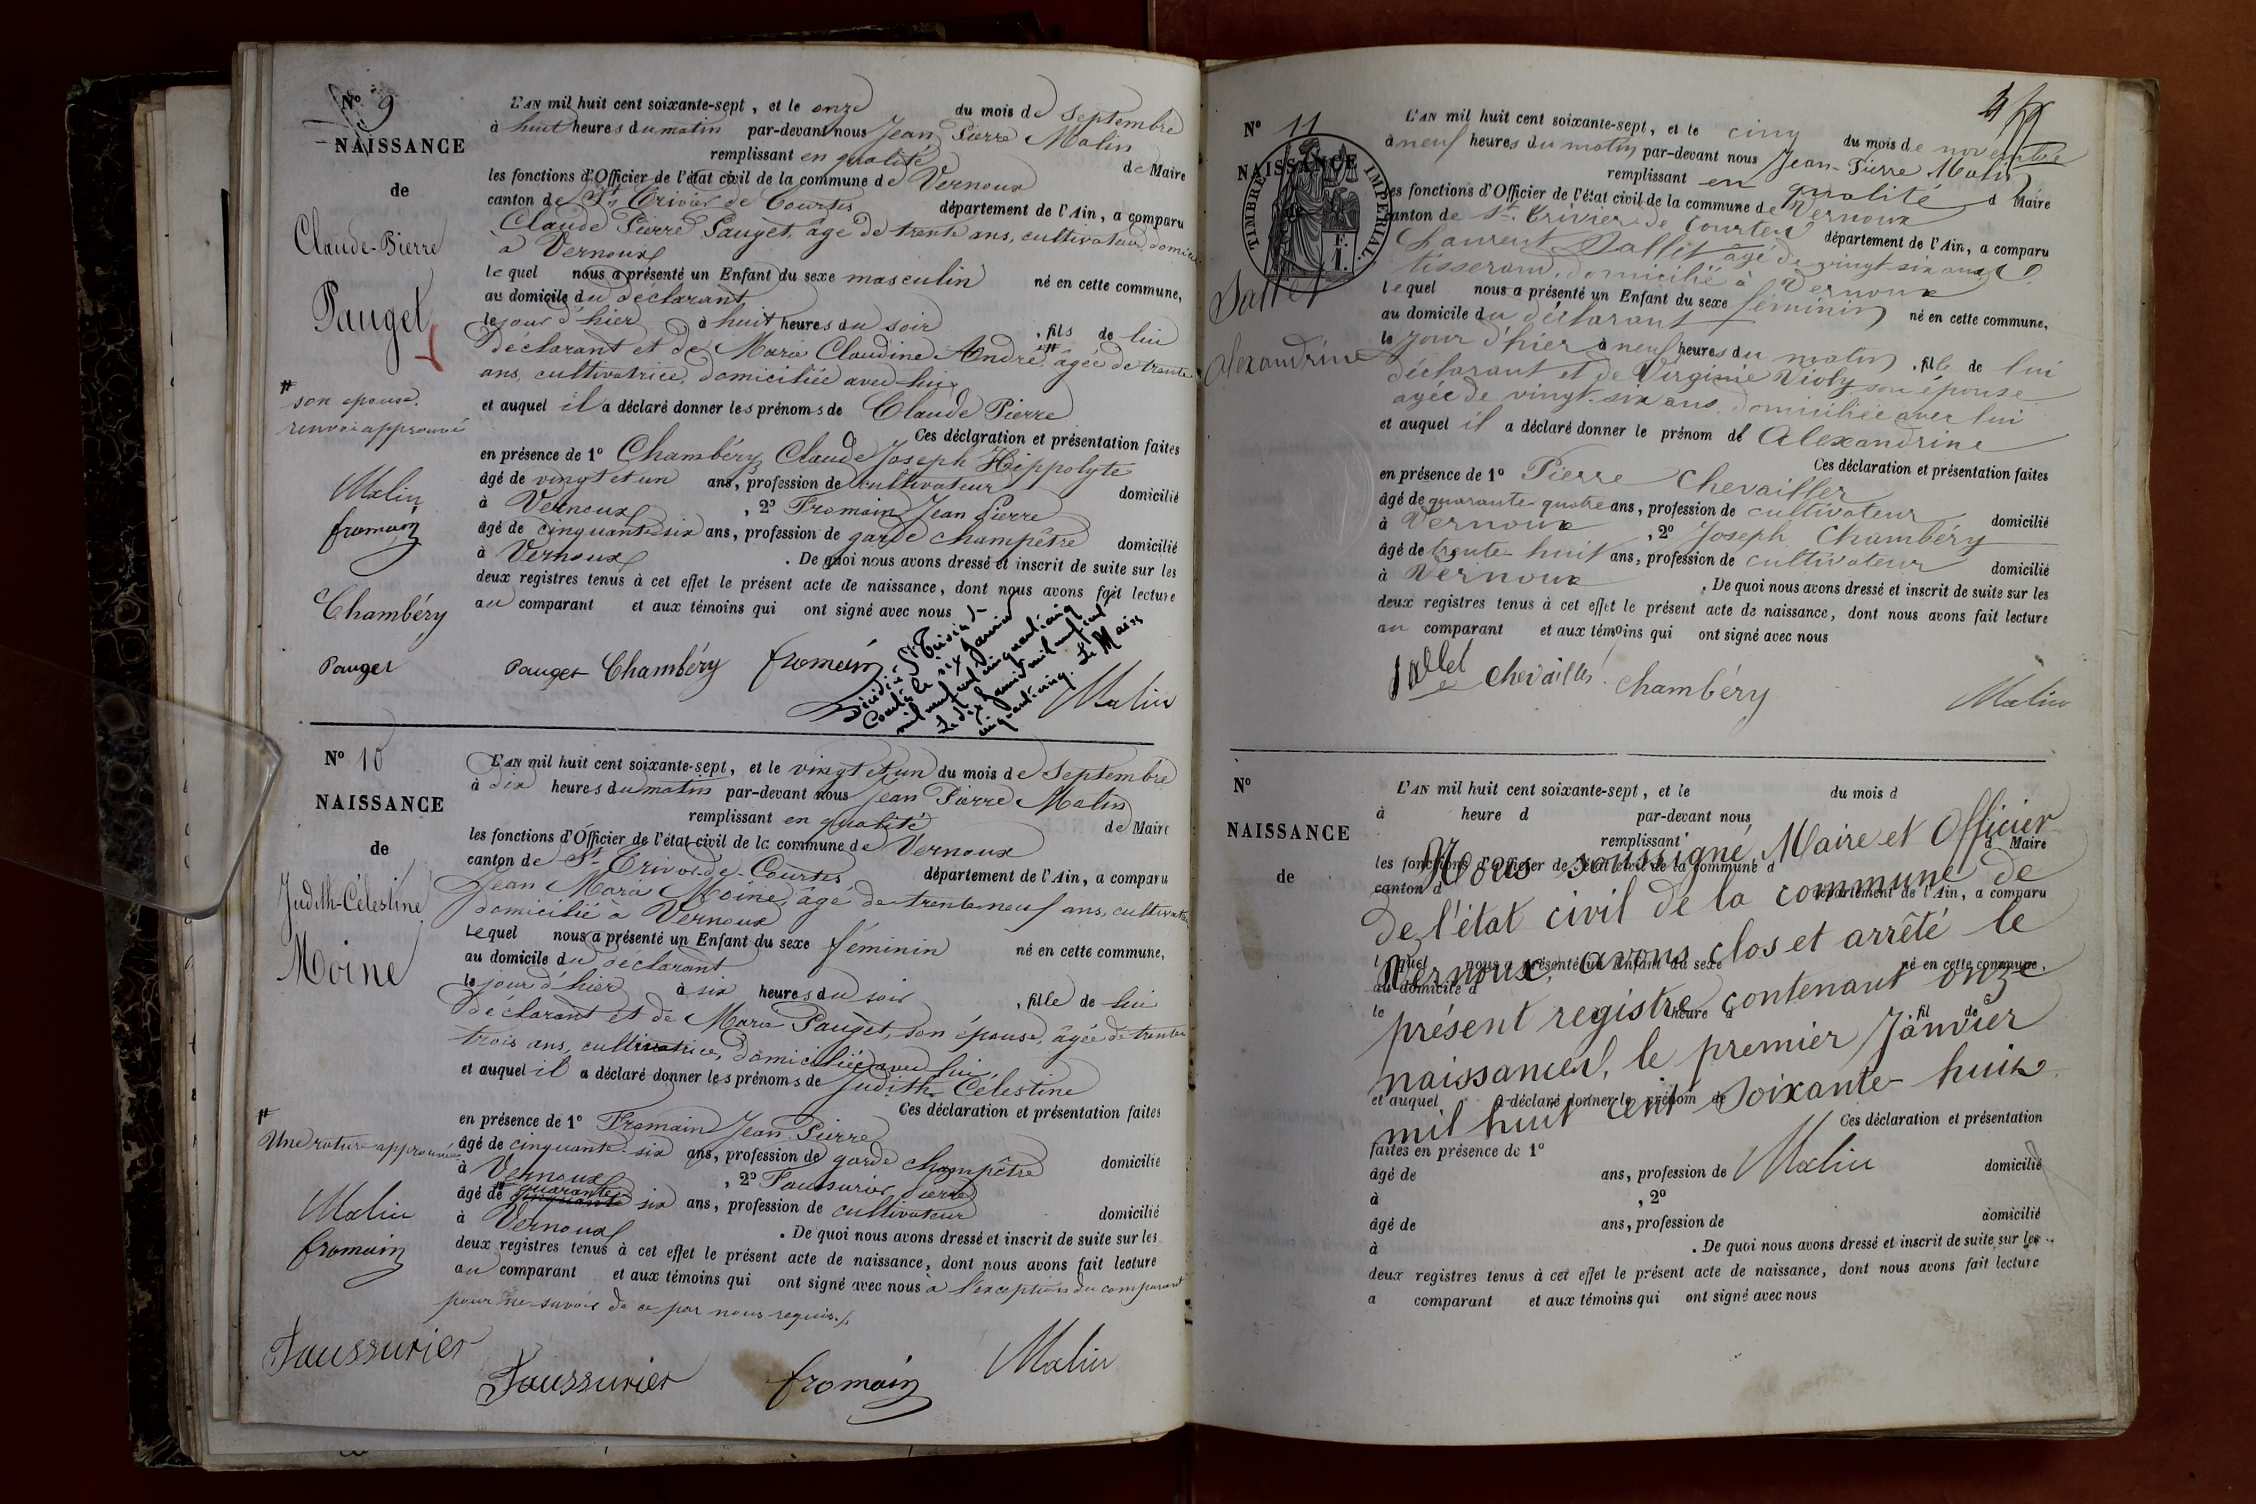 N° 9
NAISSANCE
de
Claude-Pierre
Pauget
#
son épouse.
renvoi approuvé
Malin
fromain
Chambéry
Pauget
L'AN mil huit cent soixante-sept, et le onze du mois de Septembre
à huit heures du matin par-devant nous Jean Pierre Malin
remplissant en qualité de Maire
les fonctions d'Officier de l'état civil de la commune de Vernoux
canton de St Trivier de Courtes département de l'Ain, a comparu
Claude Pierre Pauget, âgé de trente ans, cultivateur, domicilié
à Vernoux
lequel nous a présenté un Enfant du sexe masculin né en cette commune,
au domicile du déclarant,
le jour d'hier à huit heures du soir, fils de lui
déclarant et de Marie Claudine André, # âgée de trente
ans, cultivatrice, domiciliée avec lui,
et auquel il a déclaré donner les prénoms de Claude Pierre
Ces déclaration et présentation faites
en présence de 1° Chambéry, Claude Joseph Hippolyte
âgé de vingt et un ans, profession de cultivateur domicilié
à Vernoux, 2° Fromain Jean Pierre
âgé de cinquante-six ans, profession de garde champêtre domicilié
à Vernoux. De quoi nous avons dressé et inscrit de suite sur les
deux registres tenus à cet effet le présent acte de naissance, dont nous avons fait lecture
au comparant et aux témoins qui ont signé avec nous
Pauget Chambéry fromain Malin
Décédé à St Trivier de
Courtes le six Janvier
mil neuf cent cinquante cinq
Le dix Janvier mil neuf cent
cinquante cinq. Le Maire
N° 10
NAISSANCE
de
Judith-Célestine
Moine
#
Une rature approuvée
Malin
fromain
Faussurier
L'AN mil huit cent soixante-sept, et le vingt et un du mois de Septembre
à dix heures du matin par-devant nous Jean Pierre Malin
remplissant en qualité de Maire
les fonctions d'Officier de l'état civil de la commune de Vernoux
canton de St Trivier-de-Courtes département de l'Ain, a comparu
Jean Marie Moine, âgé de trente neuf ans, cultivateur
domicilié à Vernoux
lequel nous a présenté un Enfant du sexe féminin né en cette commune,
au domicile du déclarant
le jour d'hier à six heures du soir, fille de lui
déclarant et de Marie Pauget, son épouse, âgée de trente
trois ans, cultivatrice, domiciliée avec lui,
et auquel il a déclaré donner les prénoms de Judith Célestine
Ces déclaration et présentation faites
en présence de 1° Fromain Jean Pierre
âgé de cinquante-six ans, profession de garde champêtre domicilié
à Vernoux, 2° Faussurier Pierre
# quarante
âgé de cinquante six ans, profession de cultivateur domicilié
à Vernoux. De quoi nous avons dressé et inscrit de suite sur les
deux registres tenus à cet effet le présent acte de naissance, dont nous avons fait lecture
au comparant et aux témoins qui ont signé avec nous à l'exception du comparant
pour ne savoir de ce par nous requis.
Faussurier fromain Malin
N° 11
NAISSANCE
TIMBRE IMPÉRIAL.
F.
1.
Sallet
Alexandrine
L'AN mil huit cent soixante-sept, et le cinq du mois de novembre
à neuf heures du matin par-devant nous Jean-Pierre Malin
remplissant en qualité d Maire
les fonctions d'Officier de l'état civil de la commune de Vernoux
canton de St Trivier de Courtes département de l'Ain, a comparu
Laurent Sallet âgé de vingt six ans
tisserand, domicilié à Vernoux
lequel nous a présenté un Enfant du sexe féminin né en cette commune,
au domicile du déclarant
le jour d'hier à neuf heures du matin, fille de lui
déclarant et de Virginie Violy son épouse
agée de vingt-six ans, domiciliée avec lui
et auquel il a déclaré donner le prénom de Alexandrine
Ces déclaration et présentation faites
en présence de 1° Pierre Chevailler
âgé de quarante-quatre ans, profession de cultivateur domicilié
à Vernoux, 2° Joseph Chambéry
âgé de trente-huit ans, profession de cultivateur domicilié
à Vernoux. De quoi nous avons dressé et inscrit de suite sur les
deux registres tenus à cet effet le présent acte de naissance, dont nous avons fait lecture
au comparant et aux témoins qui ont signé avec nous
Sallet Chevailler Chambéry Malin
N°
NAISSANCE
de
L'AN mil huit cent soixante-sept, et le du mois d
à heure d par-devant nous
remplissant d Maire
les fonctions d'Officier de l'état civil de la commune d
canton d département de l'Ain, a comparu
l quel nous a présenté un Enfant du sexe né en cette commune,
au domicile d
le heure d fil de
et auquel a déclaré donner le prénom de
Ces déclaration et présentation
faites en présence de 1°
âgé de ans, profession de domicilié
à , 2°
âgé de ans, profession de domicilié
à . De quoi nous avons dressé et inscrit de suite sur les
deux registres tenus à cet effet le présent acte de naissance, dont nous avons fait lecture
a comparant et aux témoins qui ont signé avec nous
Nous soussigné, Maire et Officier
de l'état civil de la commune de
Vernoux, avons clos et arrêté le
présent registre contenant onze
naissances, le premier Janvier
mil huit cent soixante-huit.
Malin